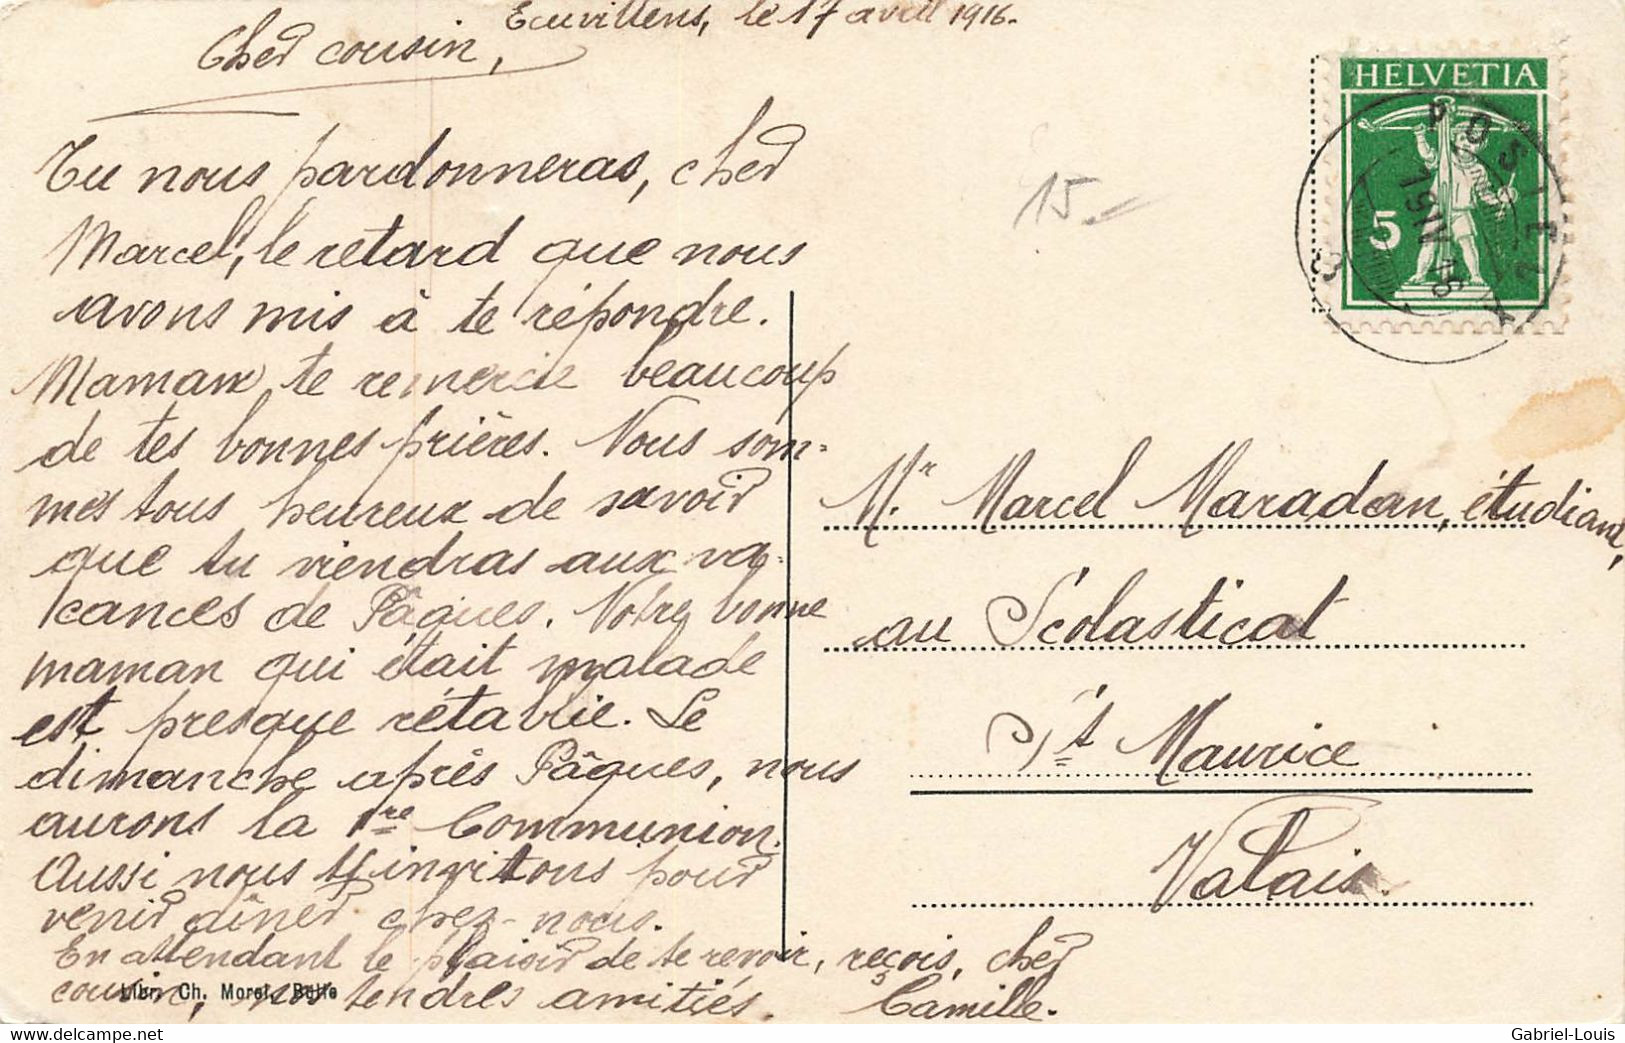 Ecuvillens, le 17 avril 1916.
Cher cousin,
Tu nous pardonneras, cher
Marcel, le retard que nous
avons mis à te répondre.
Maman te remercie beaucoup
de tes bonnes prières. Nous som-
mes tous heureux de savoir
que tu viendras aux va-
cances de Pâques. Notre bonne
maman qui était malade
est presque rétablie. Le
dimanche après Pâques, nous
aurons la 1re Communion.
Aussi nous t'invitons pour
venir dîner chez-nous.
En attendant le plaisir de te revoir, reçois, cher
cousin, nos tendres amitiés. Camille.
Libr. Ch. Morel, Bulle
HELVETIA
5
POSIEUX
19 IV 16
15.-
Mr. Marcel Maradan, étudiant,
au Scolasticat
St Maurice
Valais.
Gabriel-Louis